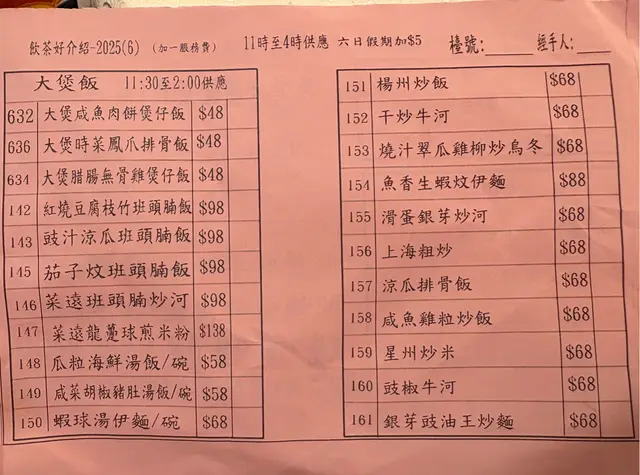 飲茶好介紹-2025(6) (加一服務費) 11時至4時供應 六日假期加$5 檯號: 經手人:
大煲飯 11:30至2:00供應
632 大煲咸魚肉餅煲仔飯 $48
636 大煲時菜鳳爪排骨飯 $48
634 大煲腊腸無骨雞煲仔飯 $48
142 紅燒豆腐枝竹班頭腩飯 $98
143 豉汁涼瓜班頭腩飯 $98
145 茄子炆班頭腩飯 $98
146 菜遠班頭腩炒河 $98
147 菜遠龍躉球煎米粉 $138
148 瓜粒海鮮湯飯/碗 $58
149 咸菜胡椒豬肚湯飯/碗 $58
150 蝦球湯伊麵/碗 $68
151 楊州炒飯 $68
152 干炒牛河 $68
153 燒汁翠瓜雞柳炒烏冬 $68
154 魚香生蝦炆伊麵 $88
155 滑蛋銀芽炒河 $68
156 上海粗炒 $68
157 涼瓜排骨飯 $68
158 咸魚雞粒炒飯 $68
159 星州炒米 $68
160 豉椒牛河 $68
161 銀芽豉油王炒麵 $68